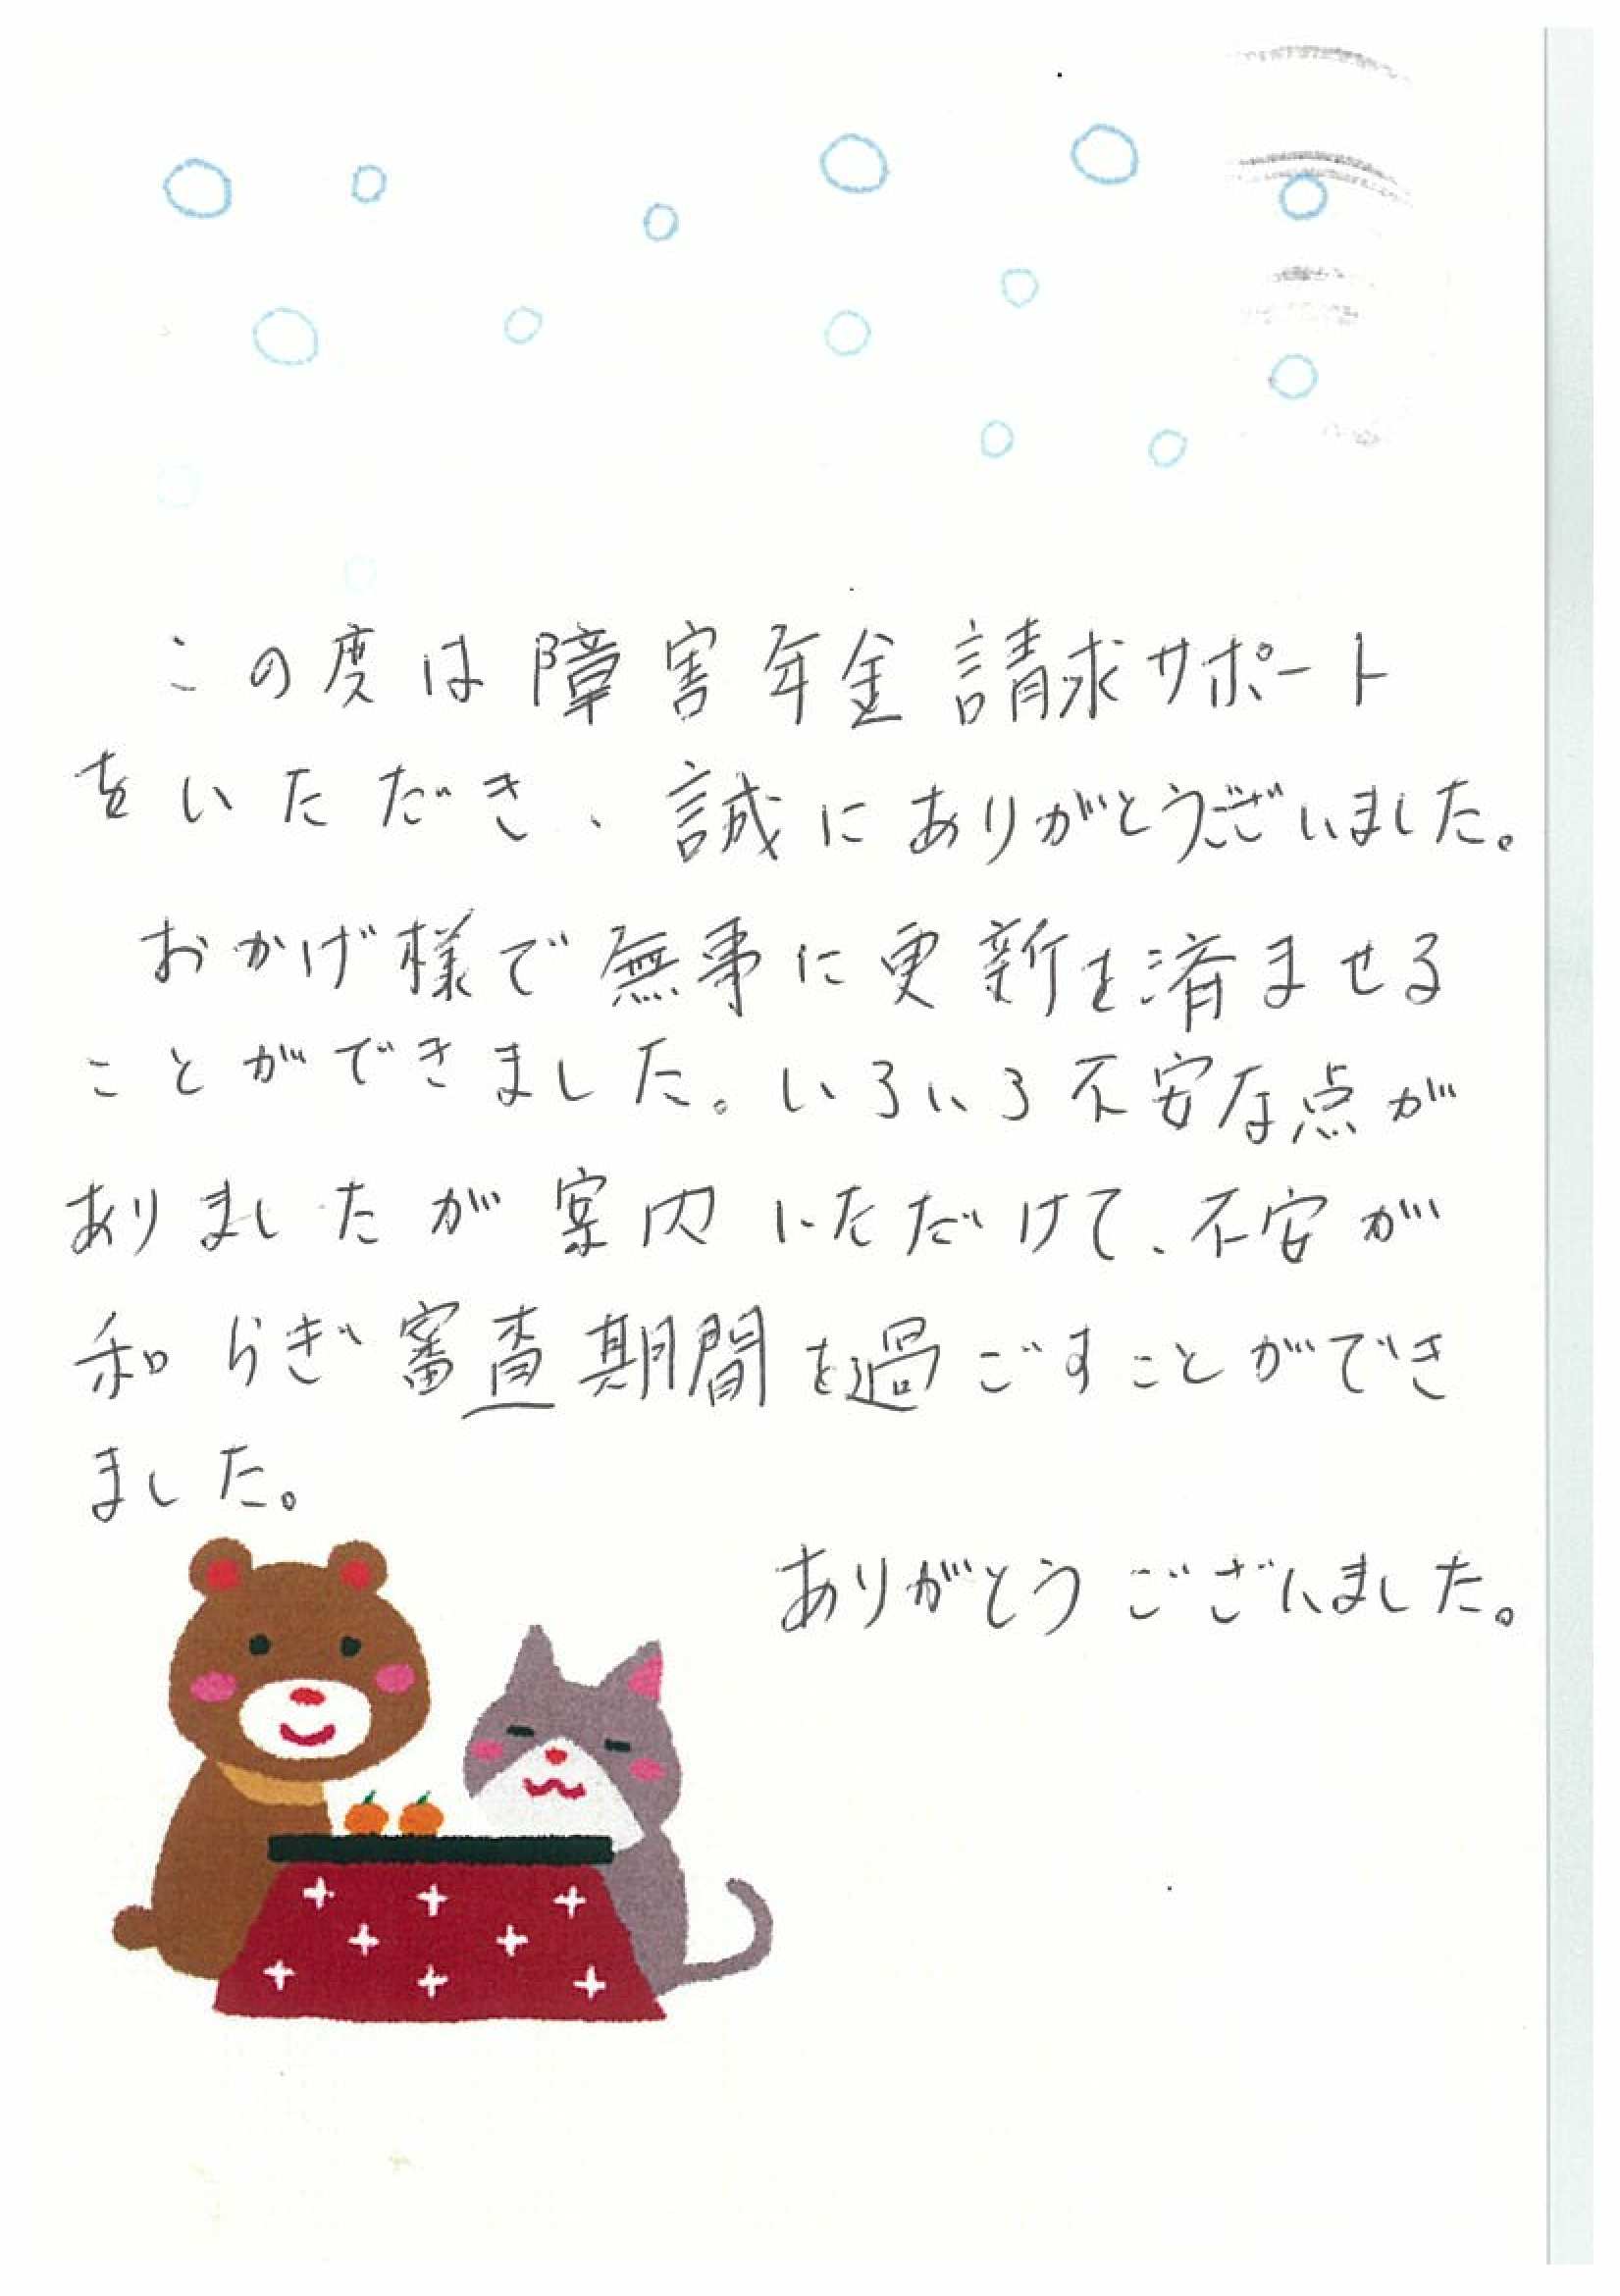 この度は障害年金請求サポート
をいただき、誠にありがとうございました。
おかげ様で無事に更新を済ませる
ことができました。いろいろ不安な点が
ありましたが案内いただけて、不安が
和らぎ審査期間を過ごすことができ
ました。
ありがとうございました。